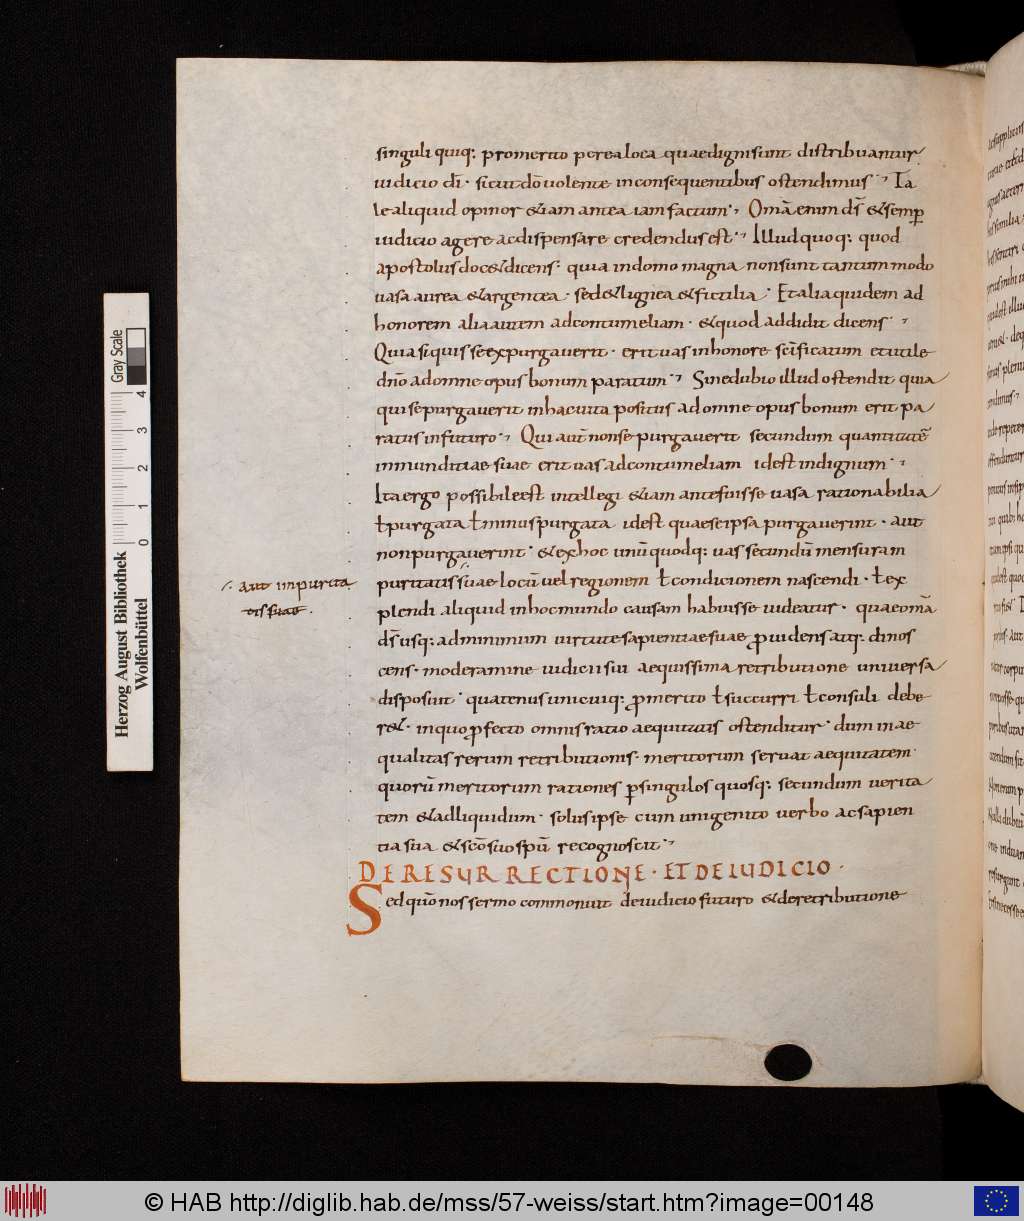 singuli quiq: promerito pcrealoca quaedignisunt distribuantur
iudicio dī· sicutdōuolente inconsequentibus ostendimus · Ta
lealiquid opinor &iam antea iam factum · Omā enim dś &semꝑ
iudicio agere acdispensare credendusest · Illudquoq: quod
apostolusdoc&dicens· quia indomo magna nonsunt tantummodo
uasa aurea &argentea · sed&lignea &fictilia · Etaliaquidem ad
honorem aliaautem adcontumeliam · &quod addidit dicens ·
Quiasiquis seexpurgauerit · erituas inhonore scīficatum etutile
dnō adomne opus bonum paratum · Sinedubio illud ostendit quia
quisepurgauerit inhacuita positus adomne opus bonum erit pa
ratus infuturo · Qui aut̄ nonse purgauerit secundum quantitatē
inmunditiae suae erit uas adcontumeliam idest indignum ·
Itaergo possibileest intellegi &iam antefuisse uasa rationabilia
ł purgata ł minuspurgata idest quaeseipsa purgauerint · aut
nonpurgauerint · &exhoc unū quodq: uas secundū mensuram
puritatis suae locū uel regionem ł condicionem nascendi · ł ex
plendi aliquid inhocmundo causam habuisse uideatur · quaeomā
dś usq: adminimum uirtute sapientiae suae ꝓuidens atq: dinos
cens · moderamine iudicii sui aequissima retributione uniuersa
disposuit · quatenus unicuiq: ꝓmerito ł succurri ł consuli debe
r& · inquo ꝓfecto omnis ratio aequitatis ostenditur · dum inae
qualitas rerum retributionis · meritorum seruat aequitatem
quorū meritorum rationes ꝑsingulos quosq: secundum uerita
tem &adliquidum · solusipse cum unigenito uerbo acsapien
tia sua &scō suo spū recognoscit ·
DERESURRECTIONE · ET DE IUDICIO ·
Sed quō nos sermo commonuit deiudicio futuro &deretributione
aut inpurita
tis suae .
Herzog August Bibliothek
Wolfenbüttel
0 1 2 3 4
Gray Scale
© HAB http://diglib.hab.de/mss/57-weiss/start.htm?image=00148